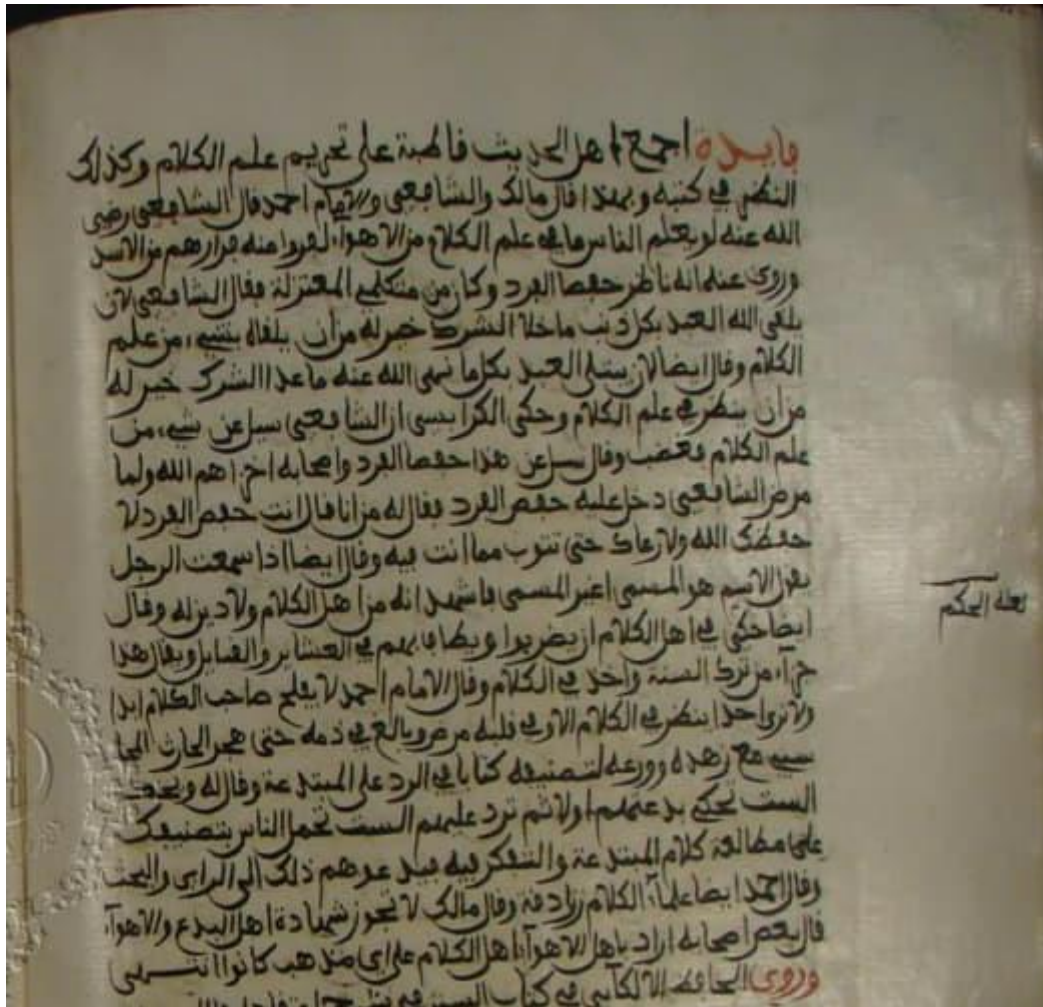 فايدة اجمع اهل الحديث فاطبة على تحريم علم الكلام وكذلك
النظر في كتبه وبهذا قال مالك والشافعي والامام احمد قال الشافعي رضي
الله عنه لو يعلم الناس ما في علم الكلام من الاهواء لفروا منه فرارهم من الاسد
وروى عنه انه ناظر حفصا الفرد وكان من متكلمي المعتزلة فقال الشافعي لان
يلقى الله العبد بكل ذنب ما خلا الشرك خير له من ان يلقاه بشيء من علم
الكلام وقال ايضا لان يبتلى العبد بكل ما نهى الله عنه ما عدا الشرك خير له
من ان ينظر في علم الكلام وحكى الكرابيسي ان الشافعي سيل عن شيء من
علم الكلام فغضب وقال سل عن هذا حفصا الفرد واصحابه اخزاهم الله ولما
مرض الشافعي دخل عليه حفص الفرد فقال له من انا قال انت حفص الفرد لا
حفظك الله ولا رعاك حتى تتوب مما انت فيه وقال ايضا اذا سمعت الرجل
يقول الاسم هو المسمى اغير المسمى فاشهد انه من اهل الكلام ولا دين له وقال
ايضا حكمي في اهل الكلام ان يضربوا ويطاف بهم في العشاير والقبايل ويقال هذا
جزاء من ترك السنة واخذ في الكلام وقال الامام احمد لا يفلح صاحب الكلام ابدا
ولا ترى احدا ينظر في الكلام الا وفي قلبه مرض وبالغ في ذمه حتى هجر الحارث المحا
سبي مع زهده وورعه لتصنيفه كتابا في الرد على المبتدعة وقال له ويحك
الست تحكي بدعتهم اولا ثم ترد عليهم الست تحمل الناس بتصنيفك
على مطالعة كلام المبتدعة والتفكر فيه فيدعوهم ذلك الى الراي والبحث
وقال احمد ايضا علماء الكلام زنادقة وقال مالك لا تجوز شهادة اهل البدع والاهواء
قال بعض اصحابه اراد باهل الاهواء اهل الكلام على اي مذهب كانوا انتهى
وروى الحافظ اللالكائي في كتاب السنة
لعله الحكم